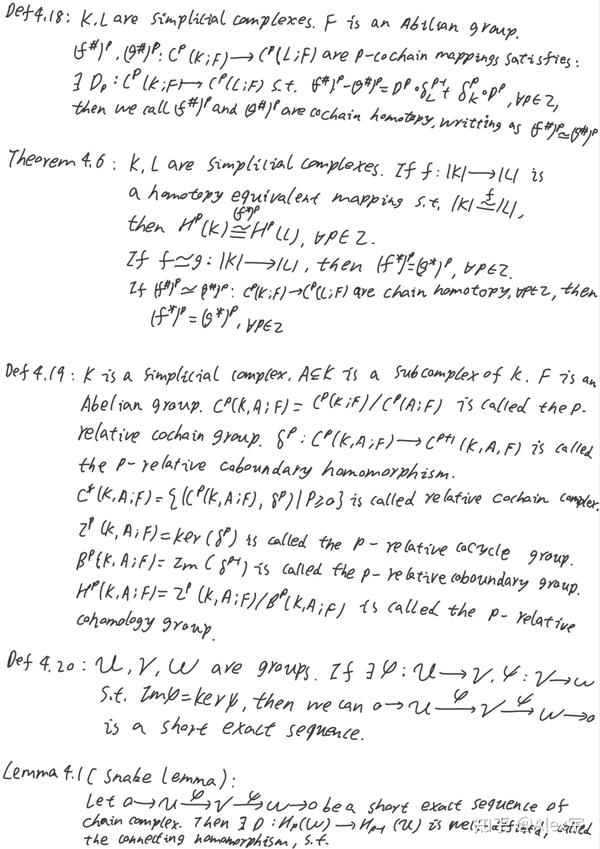 Def 4.18: K, L are simplicial complexes. F is an Abilian group.
(f^#)^p, (g^#)^p: C^p(K;F)→C^p(L;F) are p-cochain mappings satisfies:
∃ D_p: C^p(K;F)→C^p(L;F) s.t. (f^#)^p-(g^#)^p = D^p∘δ_L^{p-1}+δ_K^p∘D^p, ∀p∈Z,
then we call (f^#)^p and (g^#)^p are cochain homotopy, writting as (f^#)^p≃(g^#)^p
Theorem 4.6: K, L are simplicial complexes. If f: |K|→|L| is
a homotopy equivalent mapping s.t. |K| ≃^f |L|,
then H^p(K) ≅^{(f^*)^p} H^p(L), ∀p∈Z.
If f≃g: |K|→|L|, then (f^*)^p=(g^*)^p, ∀p∈Z.
If (f^#)^p≃(g^#)^p: C^p(K;F)→C^p(L;F) are chain homotopy, ∀p∈Z, then
(f^*)^p=(g^*)^p, ∀p∈Z
Def 4.19: K is a simplicial complex. A⊆K is a subcomplex of K. F is an
Abelian group. C^p(K,A;F) = C^p(K;F)/C^p(A;F) is called the p-
relative cochain group. δ^p: C^p(K,A;F)→C^{p+1}(K,A,F) is called
the p-relative coboundary homomorphism.
C^*(K,A;F)={(C^p(K,A;F), δ^p)|p≥0} is called relative cochain complex.
Z^p(K,A;F)=ker(δ^p) is called the p-relative cocycle group.
B^p(K,A;F)=Im(δ^{p-1}) is called the p-relative coboundary group.
H^p(K,A;F)=Z^p(K,A;F)/B^p(K,A;F) is called the p-relative
cohomology group.
Def 4.20: U, V, W are groups. If ∃φ: U→V, ψ: V→W
s.t. Imφ=kerψ, then we can 0→U→^φ V→^ψ W→0
is a short exact sequence.
Lemma 4.1 (Snake lemma):
Let 0→U→^φ V→^ψ W→0 be a short exact sequence of
chain complex. Then ∃ D: H_p(W)→H_{p-1}(U) is well defined, called
the connecting homomorphism, s.t.